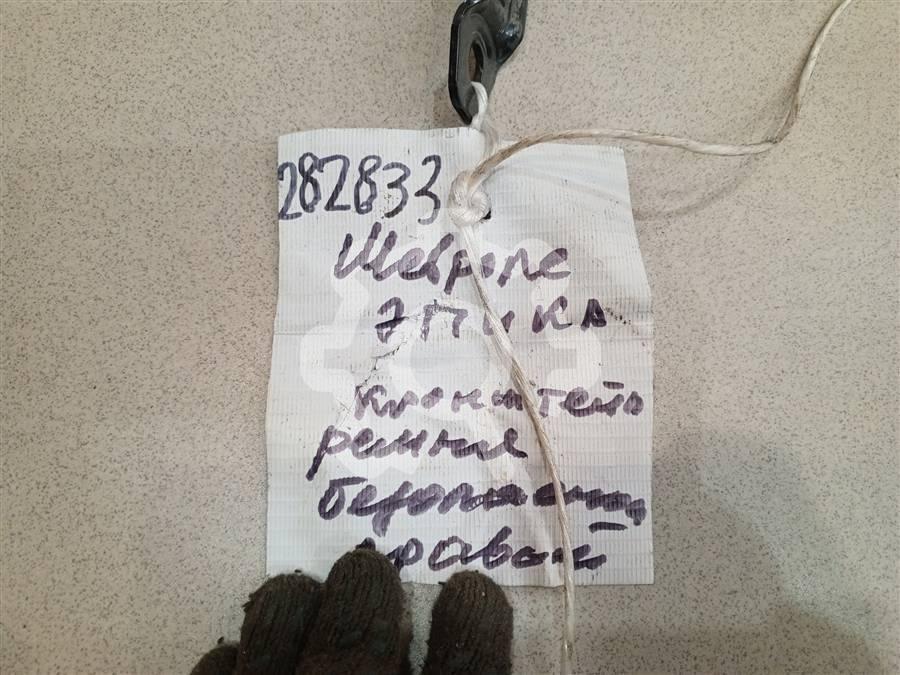 282833
Шевроле
Эпика
кронштейн
ремня
безопасности
правый